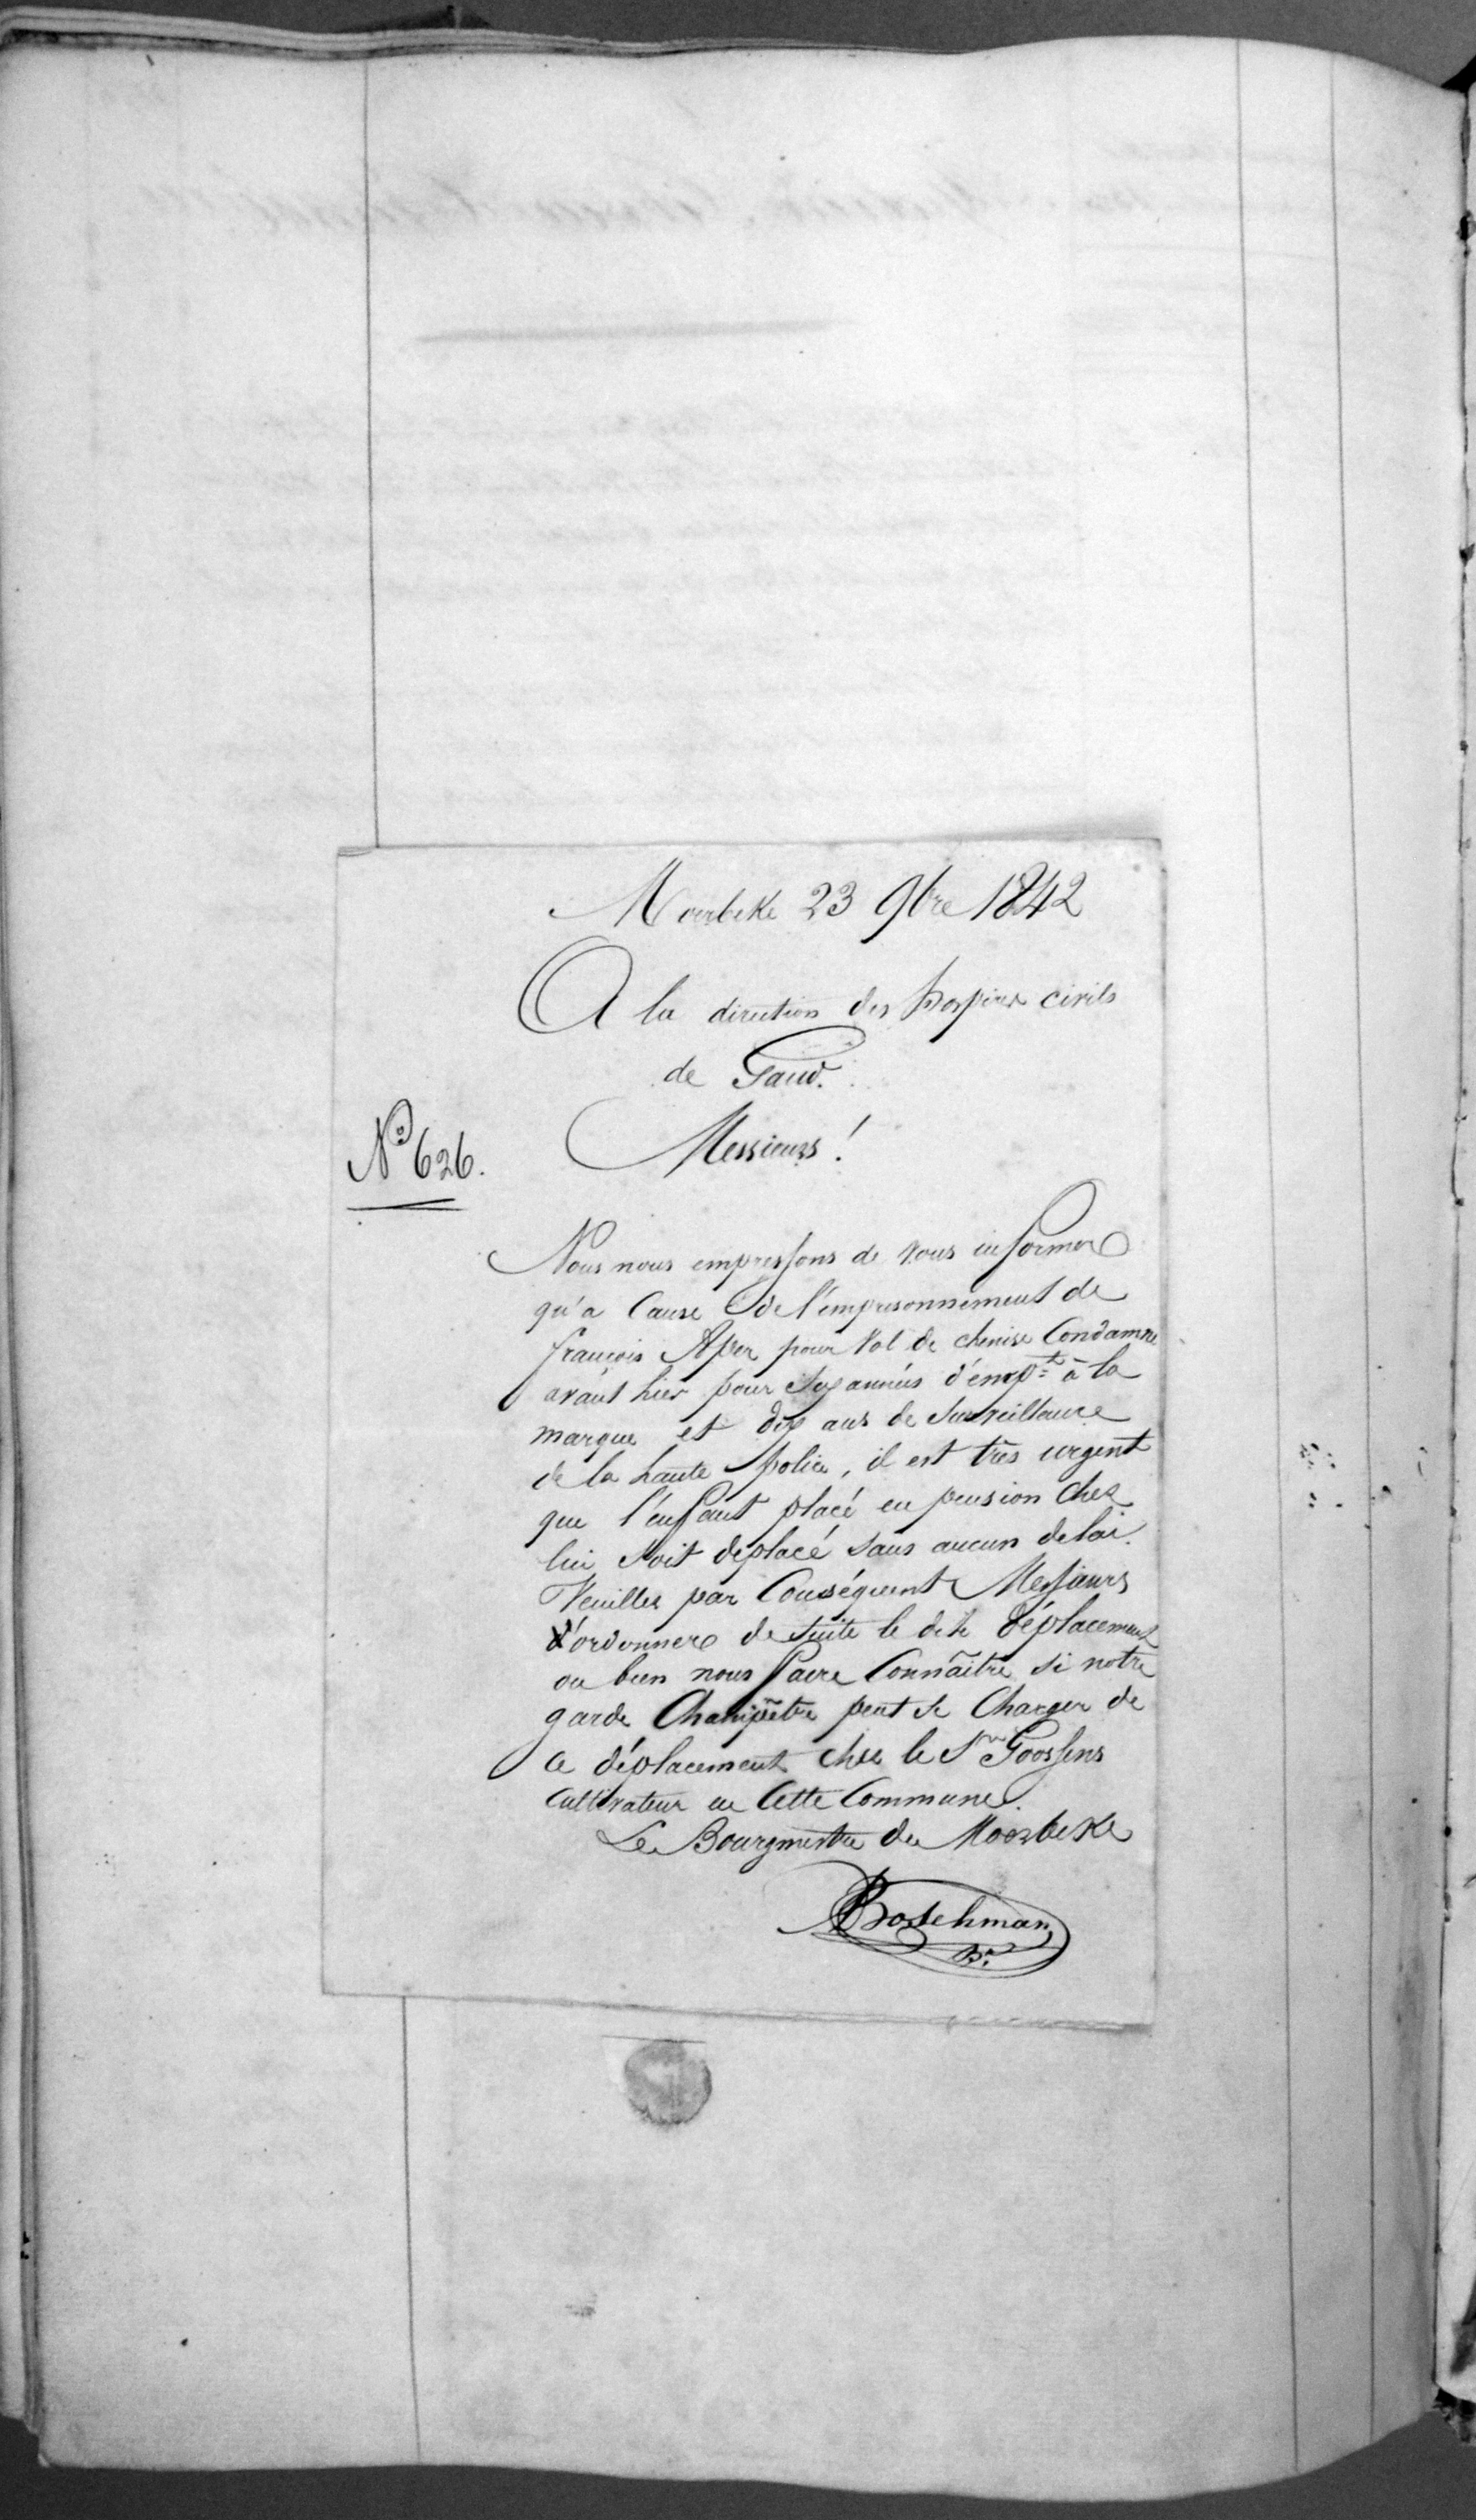 Moerbeke 23 9bre 1842
A la direction des hospices civils
de Gand.
Nº 626.
Messieurs!
Nous nous empressons de vous informer
qu'a Cause de l'emprisonnement de
françois Aper pour vol de chemise Condamné
avant hier pour six années d'emp.t à la
marque et dix ans de surveillance
de la haute police, il est très urgent
que l'enfant placé en pension chez
lui soit deplacé sans aucun delai.
Veuillez par Conséquent Messieurs
d'ordonner de suite le dit déplacement
ou bien nous faire Connaître si notre
garde Champêtre peut se Charger de
ce déplacement chez le Sr Goossens
Cultivateur en Cette Commune.
Le Bourgmestre de Moerbeke